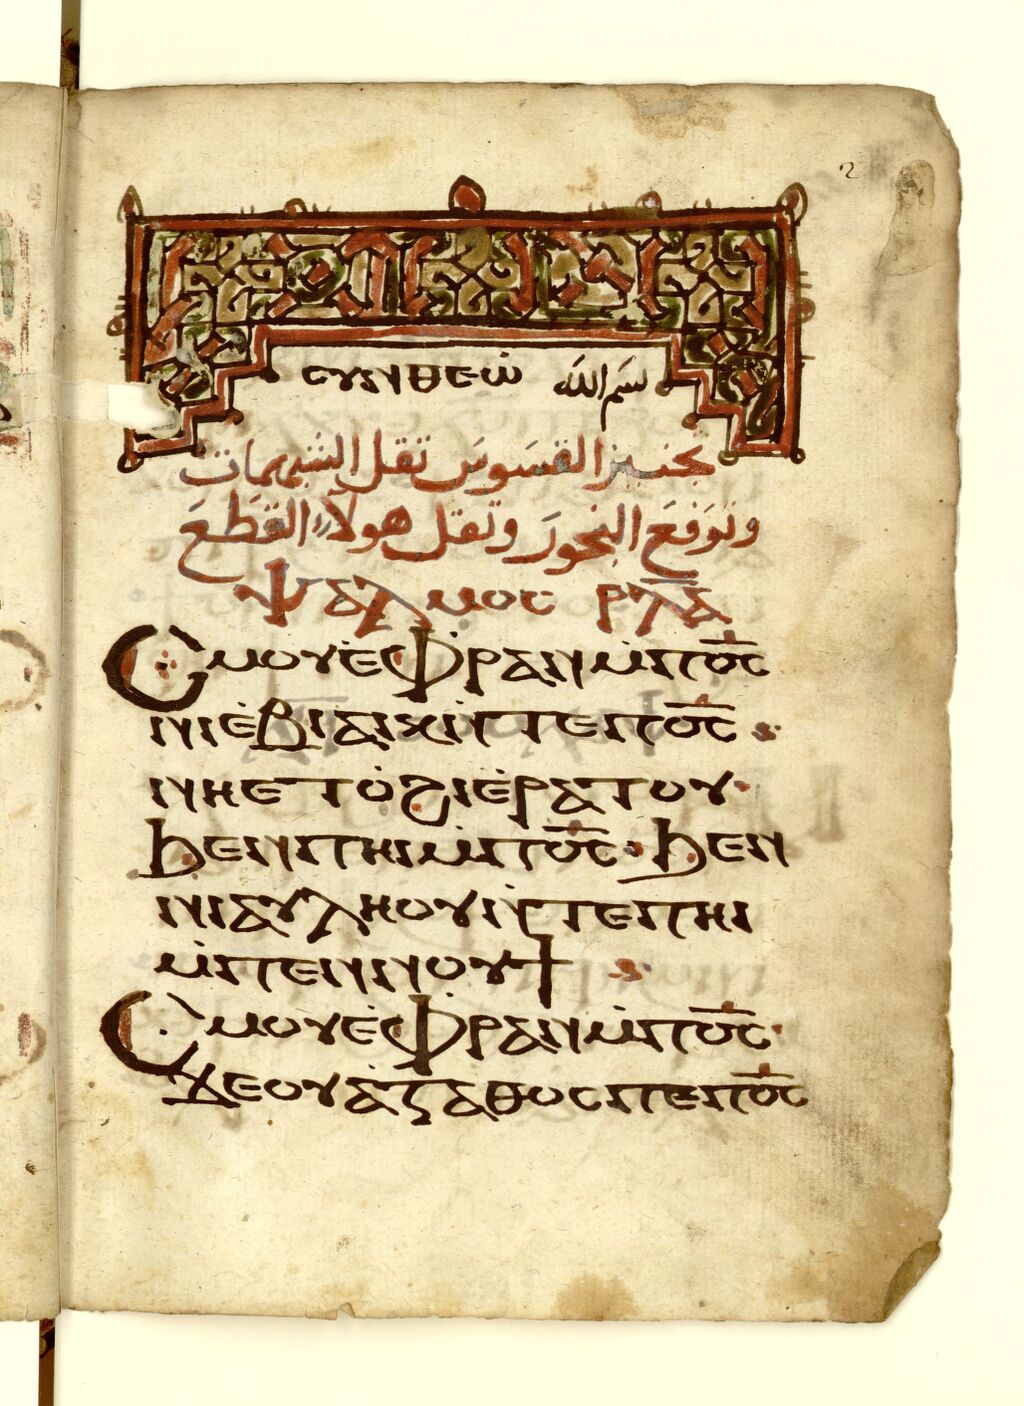 2
ⲥⲩⲛⲑⲉⲱ̇ بسم الله
تجنيز القسوس تقل الشبهمات
وترفع البخور وتقل هولاء القطع
ⲯⲁⲗⲙⲟⲥ ⲣⲗ̅ⲇ̅
Ⲥⲙⲟⲩⲉ̀ⲫⲣⲁⲛⲙ̀ⲡⲟ̅ⲥ̅
ⲛⲓⲉ̀ⲃⲓⲁⲓⲕⲛ̀ⲧⲉⲡⲟ̅ⲥ̅
ⲛⲏⲉⲧⲟ̀ϩⲓⲉ̀ⲣⲁⲧⲟⲩ
ϧⲉⲛⲡⲏⲓⲙ̀ⲡⲟ̅ⲥ̅· ϧⲉⲛ
ⲛⲓⲁⲩⲗⲏⲟⲩⲛ̀ⲧⲉⲡⲏⲓ
ⲙ̀ⲡⲉⲛⲛⲟⲩϯ
Ⲥⲙⲟⲩⲉ̀ⲫⲣⲁⲛⲙ̀ⲡⲟ̅ⲥ̅
ϫⲉⲟⲩⲁ̀ⲅⲁⲑⲟⲥⲡⲉⲡⲟ̅ⲥ̅